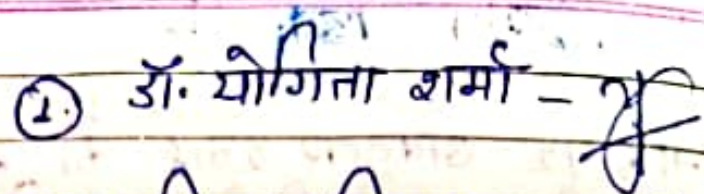 ①. डॉ. योगिता शर्मा -